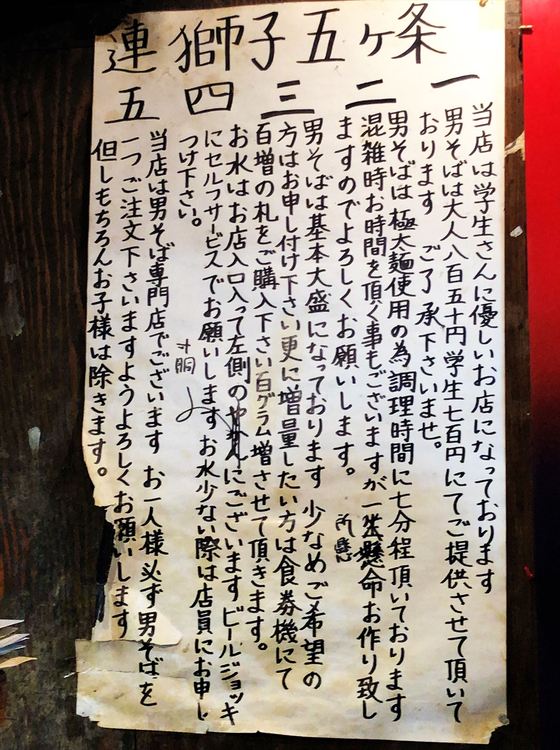 連獅子五ヶ条
一
当店は学生さんに優しいお店になっております
男そばは大人八百五十円学生七百円にてご提供させて頂いて
おります　ご了承下さいませ。
二
男そばは極太麺使用の為調理時間に七分程頂いております
混雑時お時間を頂く事もございますが一生懸命お作り致し
ますのでよろしくお願いします。
三
男そばは基本大盛になっております　少なめご希望の
方はお申し付け下さい更に増量したい方は食券機にて
百増の札をご購入下さい百グラム増させて頂きます。
四
お水はお店入口入って左側のやかんにございますビールジョッキ
にセルフサービスでお願いしますお水少ない際は店員にお申し
つけ下さい。
五
当店は男そば専門店でございます　お一人様必ず男そばを
一つご注文下さいますようよろしくお願いします
但しもちろんお子様は除きます。